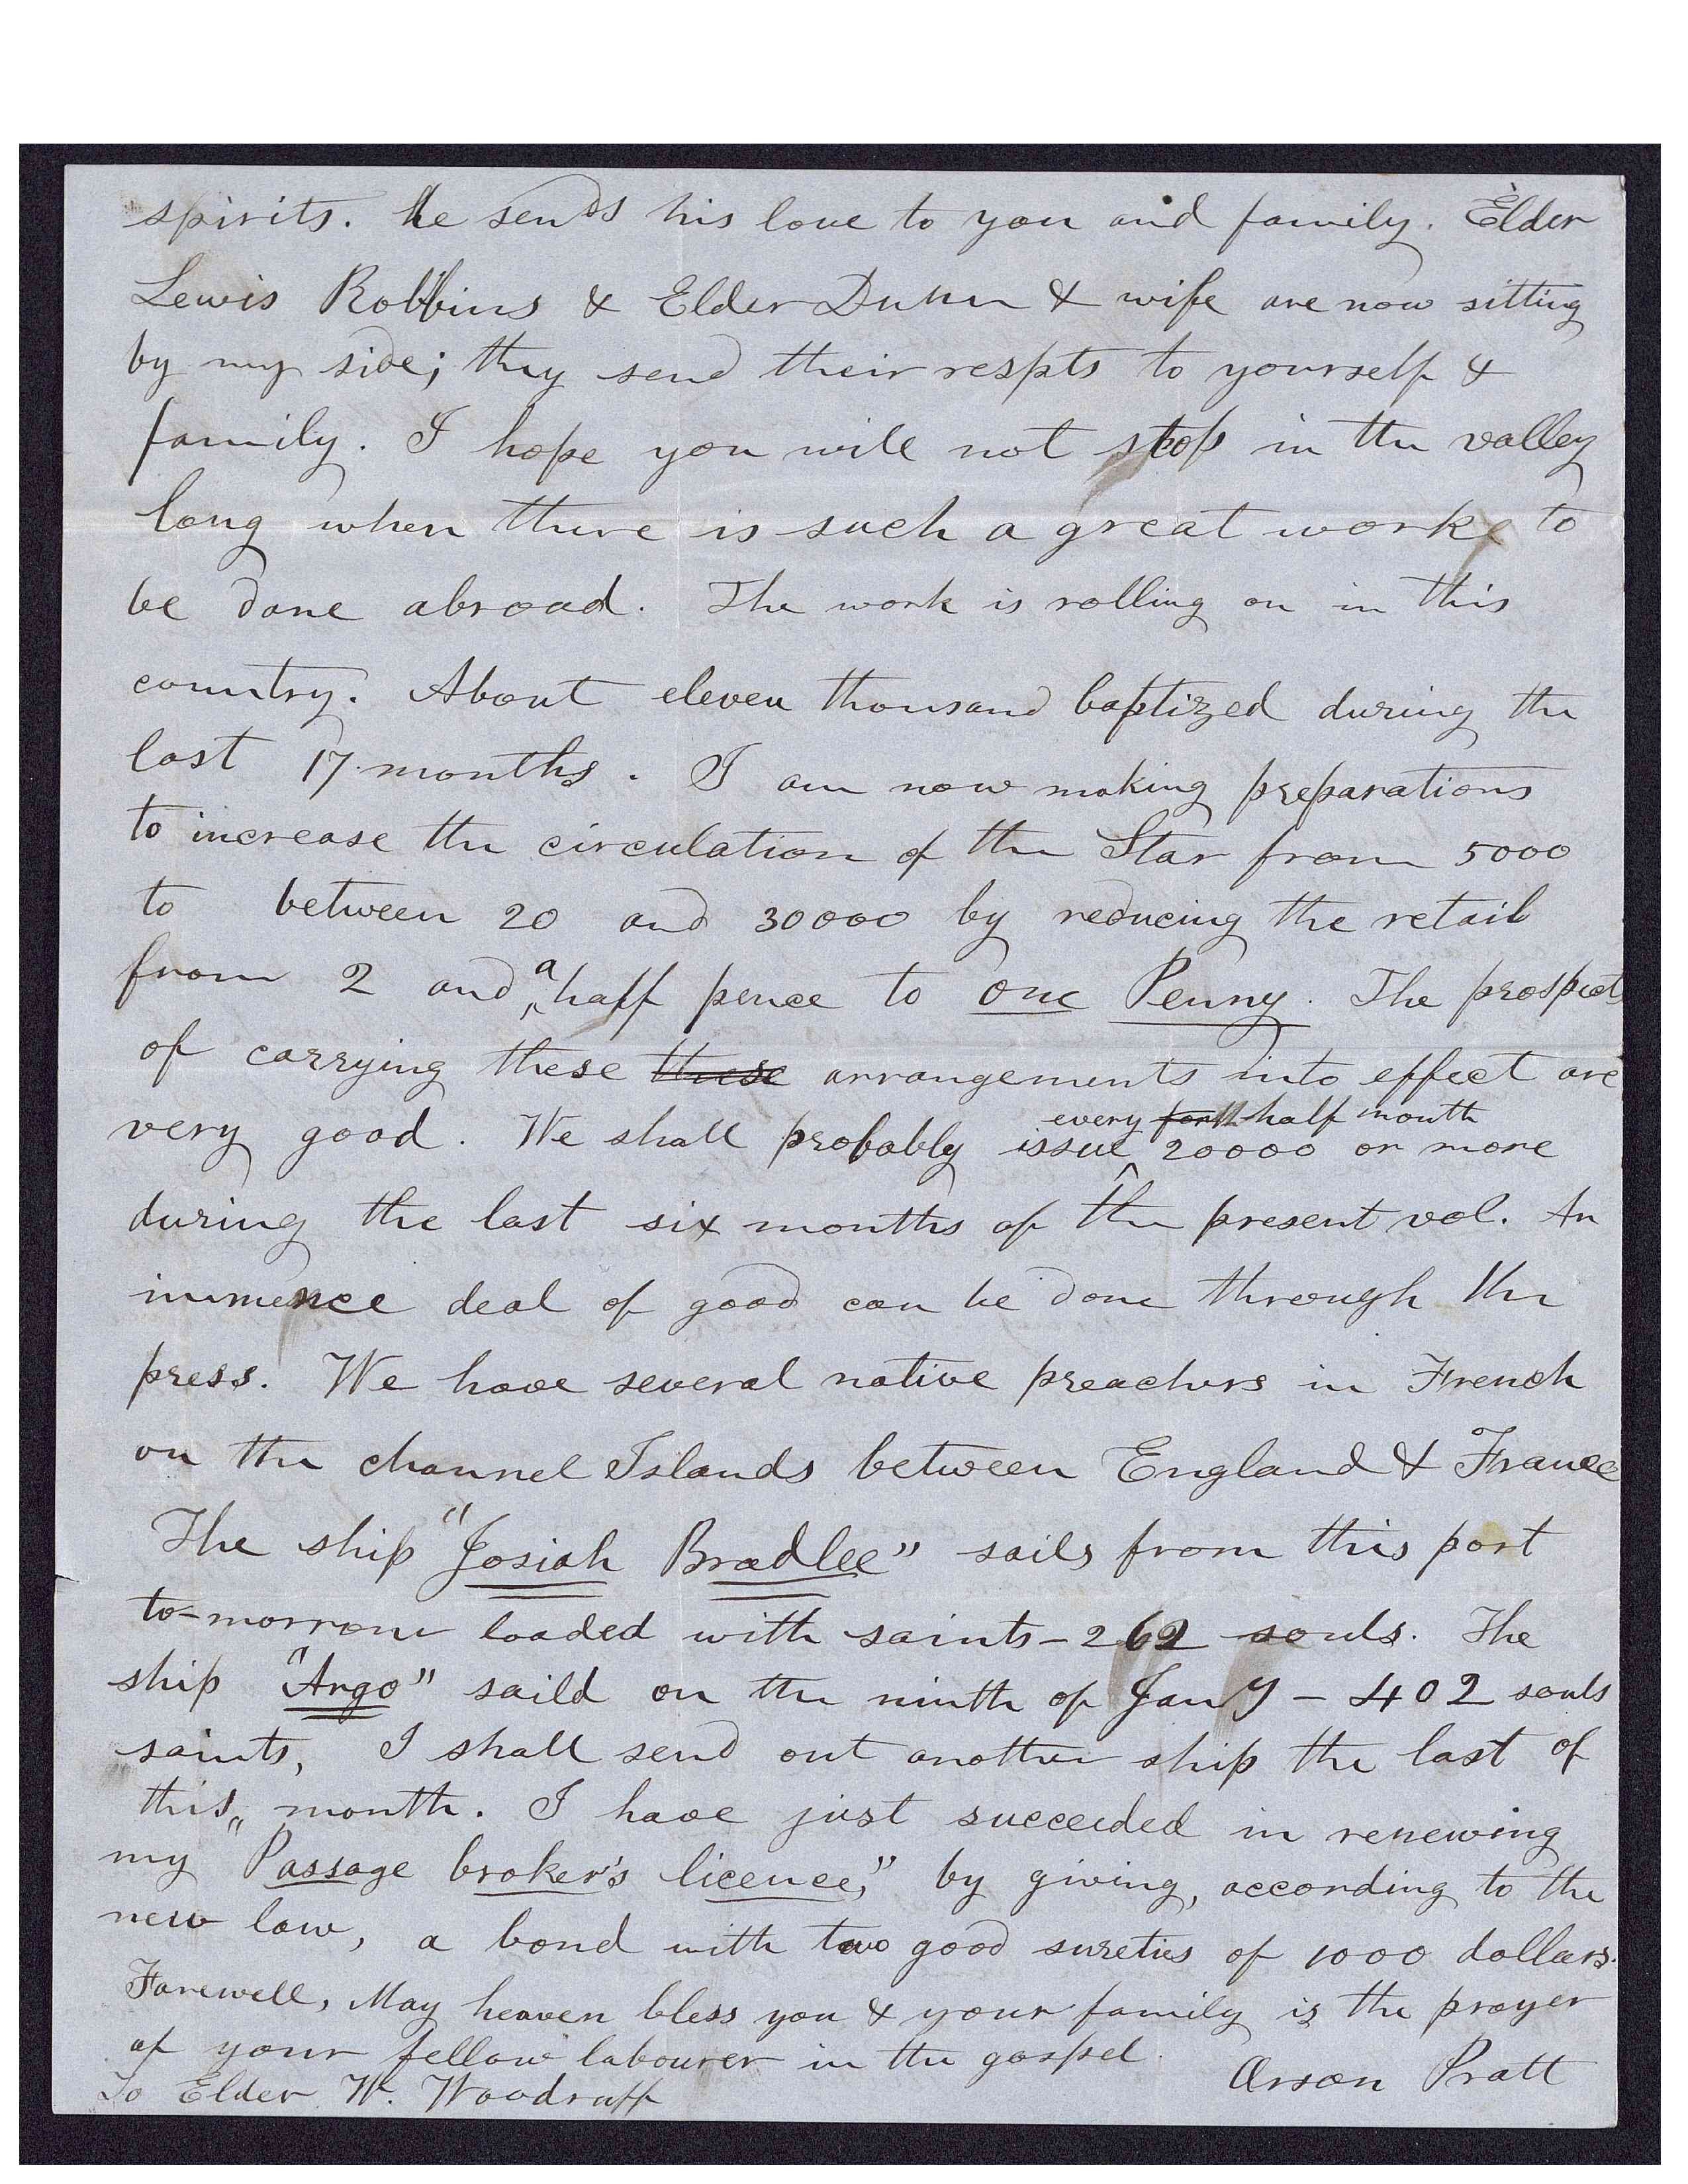 spirits. he sends his love to you and family. Elder
Lewis Robbins & Elder Dunn & wife are now sitting
by my side; they send their respts to yourself &
family. I hope you will not stop in the valley
long when there is such a great work to
be done abroad. The work is rolling on in this
country. About eleven thousand baptized during the
last 17 months. I am now making preparations
to increase the circulation of the Star from 5000
to between 20 and 30000 by reducing the retail
from 2 and a half pence to one Penny. The prospects
of carrying these these arrangements into effect are
every forth half month
very good. We shall probably issue 20000 or more
during the last six months of the present vol. An
immence deal of good can be done through the
press. We have several native preachers in French
on the channel Islands between England & France
The ship "Josiah Bradlee" sails from this port
to-morrow loaded with saints - 262 souls. The
ship "Argo" saild on the ninth of Jany - 402 souls
saints, I shall send out another ship the last of
this month. I have just succeeded in renewing
my "Passage broker's licence," by giving, according to the
new law, a bond with two good sureties of 1000 dollars.
Farewell, May heaven bless you & your family is the prayer
of your fellow labourer in the gospel.
Orson Pratt
To Elder W. Woodruff